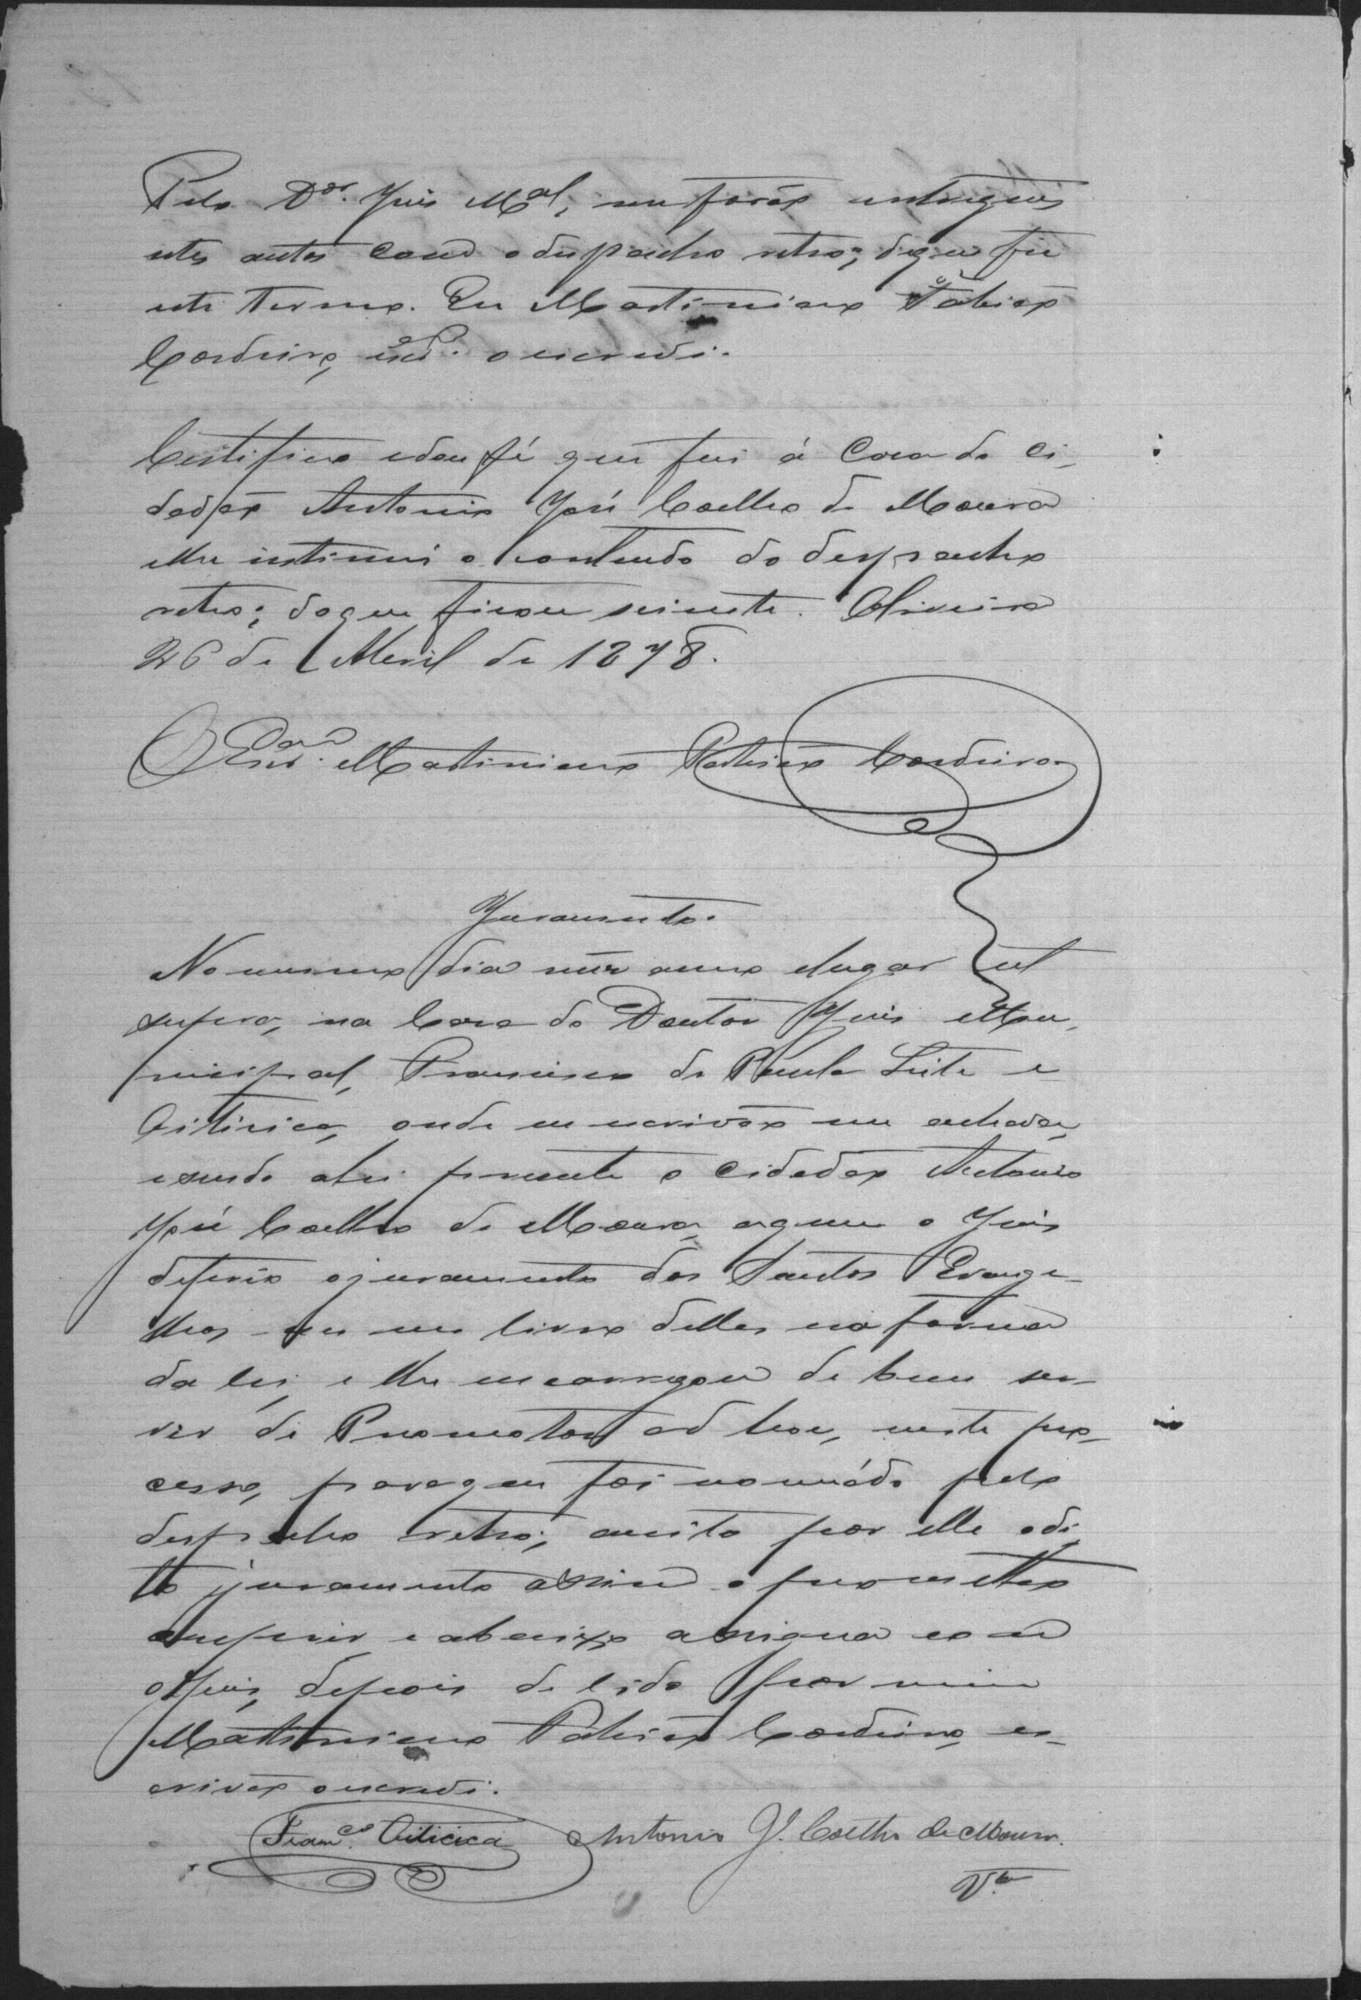 Pelo Dor. Juis Mal, me forão entregues
estes autos com o despacho retro; do que fiz
este termo. Eu Martiniano Fabião
Cordeiro, escam. o escrevi.
Certifico e dou fé que fui á Casa do ci-
dadão Antonio José Coelho de Moura
e lhe intimei o contheudo do despacho
retro; do que ficou sciente. Oliveira
26 de Abril de 1878.
O Escam. Martiniano Fabião Cordeiro
Juramento.
No mesmo dia mez anno e lugar ut
supra, na Casa do Doutor Juis Mu-
nicipal, Francisco de Paula Leite e
Oiticica, onde eu escrivão me achava,
e sendo ahi presente o cidadão Antonio
José Coelho de Moura, a quem o Juis
deferio o juramento dos Santos Evange-
lhos em um livro delles na forma
da lei, e lhe encarregou de bem ser-
vir de Promotor ad hoc, neste pro-
cesso, para que foi nomeádo pelo
despacho retro; aceito por elle o di-
to juramento assim o prometteo
cumprir e abaixo assigna com
o Juis, depois de lido por mim
Martiniano Fabião Cordeiro, es-
crivão o escrevi.
Francco. Oiticica Antonio Je. Coelho de Moura.